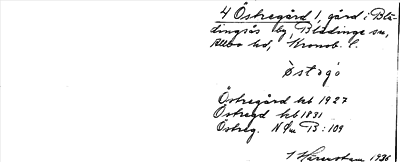 4 Östregård 1, gård i Blä-
dingsås by, Blädinge sn,
Allbo hd, Kronob. l.
Östregård kb 1927
Östregd kb 1831
Östreg. N Sm B: 109
1936